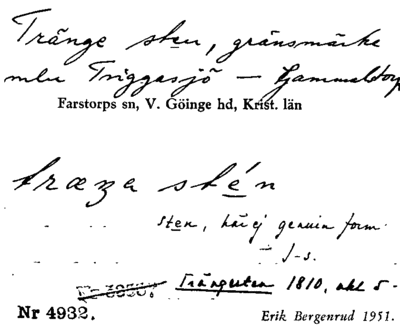 Trånge sten, gränsmärke
mln Triggasjö — Gammaltorp
Farstorps sn, V. Göinge hd, Krist. län
træŋa stén
sten, här ej genuin form
J-s.
Trångesten 1810, akt 5-
Nr 4932.
Erik Bergenrud 1951.